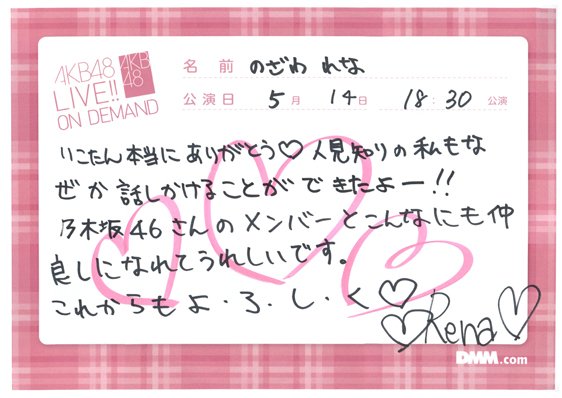 AKB48
LIVE!!
ON DEMAND
AKB
48
名前 のざわ れな
公演日 5月 14日 18:30 公演
いこたん本当にありがとう♡人見知りの私もな
ぜか話しかけることができたよー!!
乃木坂46さんのメンバーとこんなにも仲
良しになれてうれしいです。
これからもよ・ろ・し・く♡
♡Rena♡
DMM.com